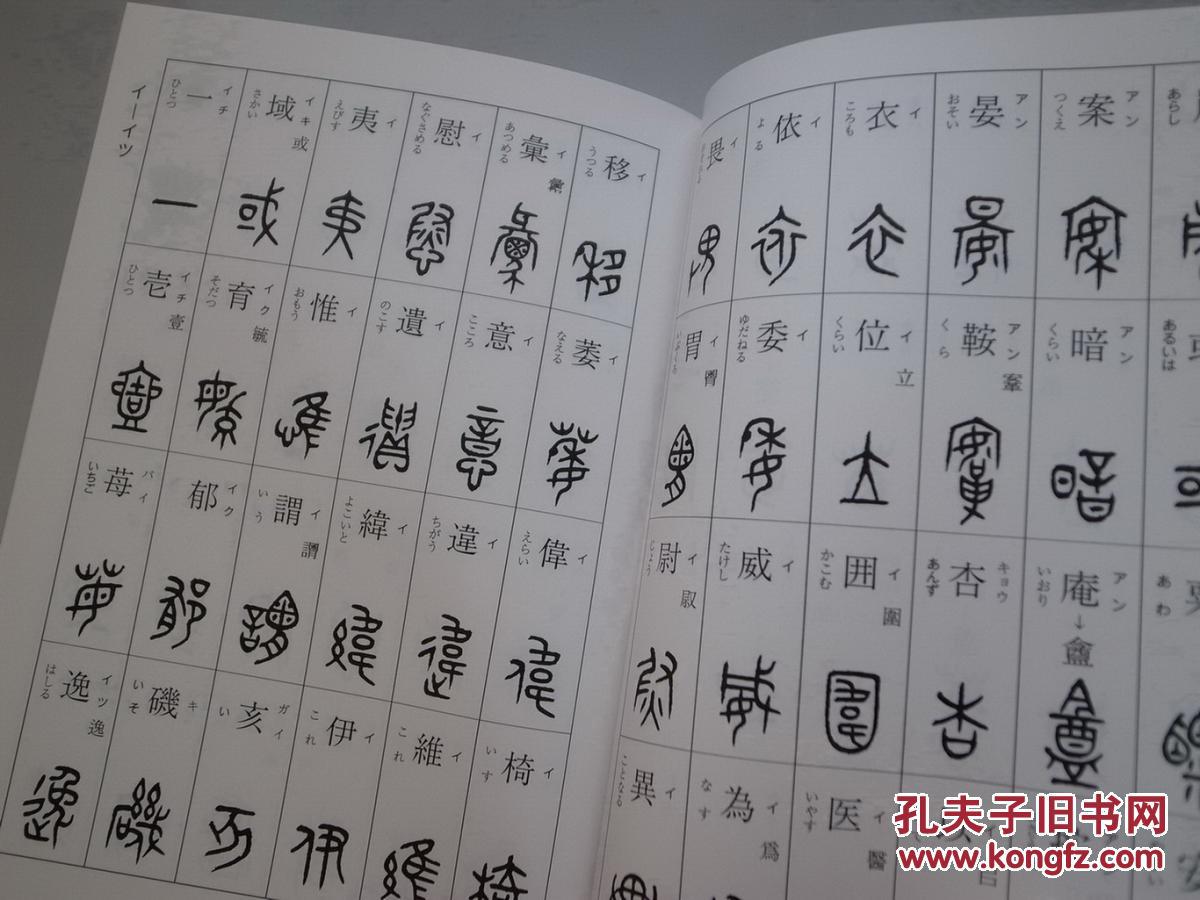 案 アン つくえ
暗 アン くらい
庵 アン いおり →盦
晏 アン おそい
鞍 アン くら 鞌
杏 キョウ あんず
衣 イ ころも
位 イ くらい 立
囲 イ かこむ 圍
医 イ いやす 醫
依 イ よる
委 イ ゆだねる
威 イ たけし
為 イ なす 爲
畏 イ
胃 イ
尉 イ じょう
異 イ ことなる
移 イ うつる
萎 イ なえる
偉 イ えらい
椅 イ いす
彙 イ あつめる
意 イ こころ
違 イ ちがう
維 イ これ
慰 イ なぐさめる
遺 イ のこす
緯 イ よこいと
伊 イ これ
夷 イ えびす
惟 イ おもう
謂 イ いう
亥 ガイ い
域 イキ さかい 或
育 イク そだつ 毓
郁 イク
磯 キ いそ
一 イチ ひとつ
壱 イチ ひとつ 壹
苺 バイ いちご
逸 イツ はしる 逸
イーイツ
孔夫子旧书网
www.kongfz.com